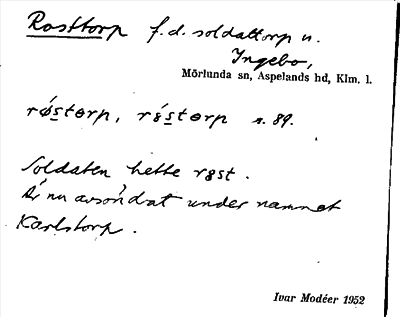 Rosttorp f.d. soldattorp u.
Ingebo,
Mörlunda sn, Aspelands hd, Klm. l.
røstorp, røstorp s. 89.
Soldaten hette røst.
Är nu avsöndrat under namnet
Karlstorp.
Ivar Modéer 1952